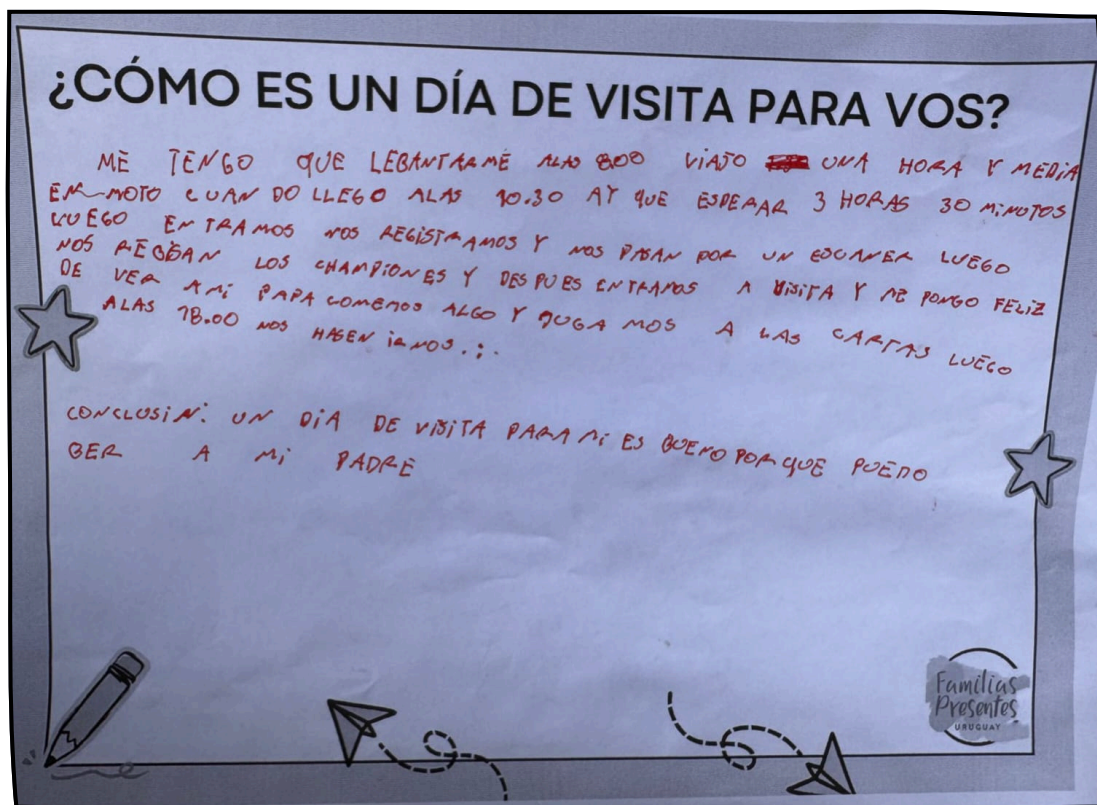 ¿CÓMO ES UN DÍA DE VISITA PARA VOS?
ME TENGO QUE LEBANTARME ALAS 8:00 VIAJO UNA HORA Y MEDIA
EN MOTO CUAN DO LLEGO ALAS 10.30 AY QUE ESPERAR 3 HORAS 30 MINUTOS
LUEGO ENTRAMOS NOS REGISTRAMOS Y NOS PASAN POR UN ESCANER LUEGO
NOS REBISAN LOS CHAMPIONES Y DESPUES ENTRAMOS A VISITA Y ME PONGO FELIZ
DE VER A MI PAPA COMEMOS ALGO Y JUGA MOS A LAS CARTAS LUEGO
ALAS 18.00 NOS HASEN IRNOS.;.
CONCLUSIN: UN DIA DE VISITA PARA MI ES BUENO PORQUE PUEDO
BER A MI PADRE
Familias
Presentes
URUGUAY